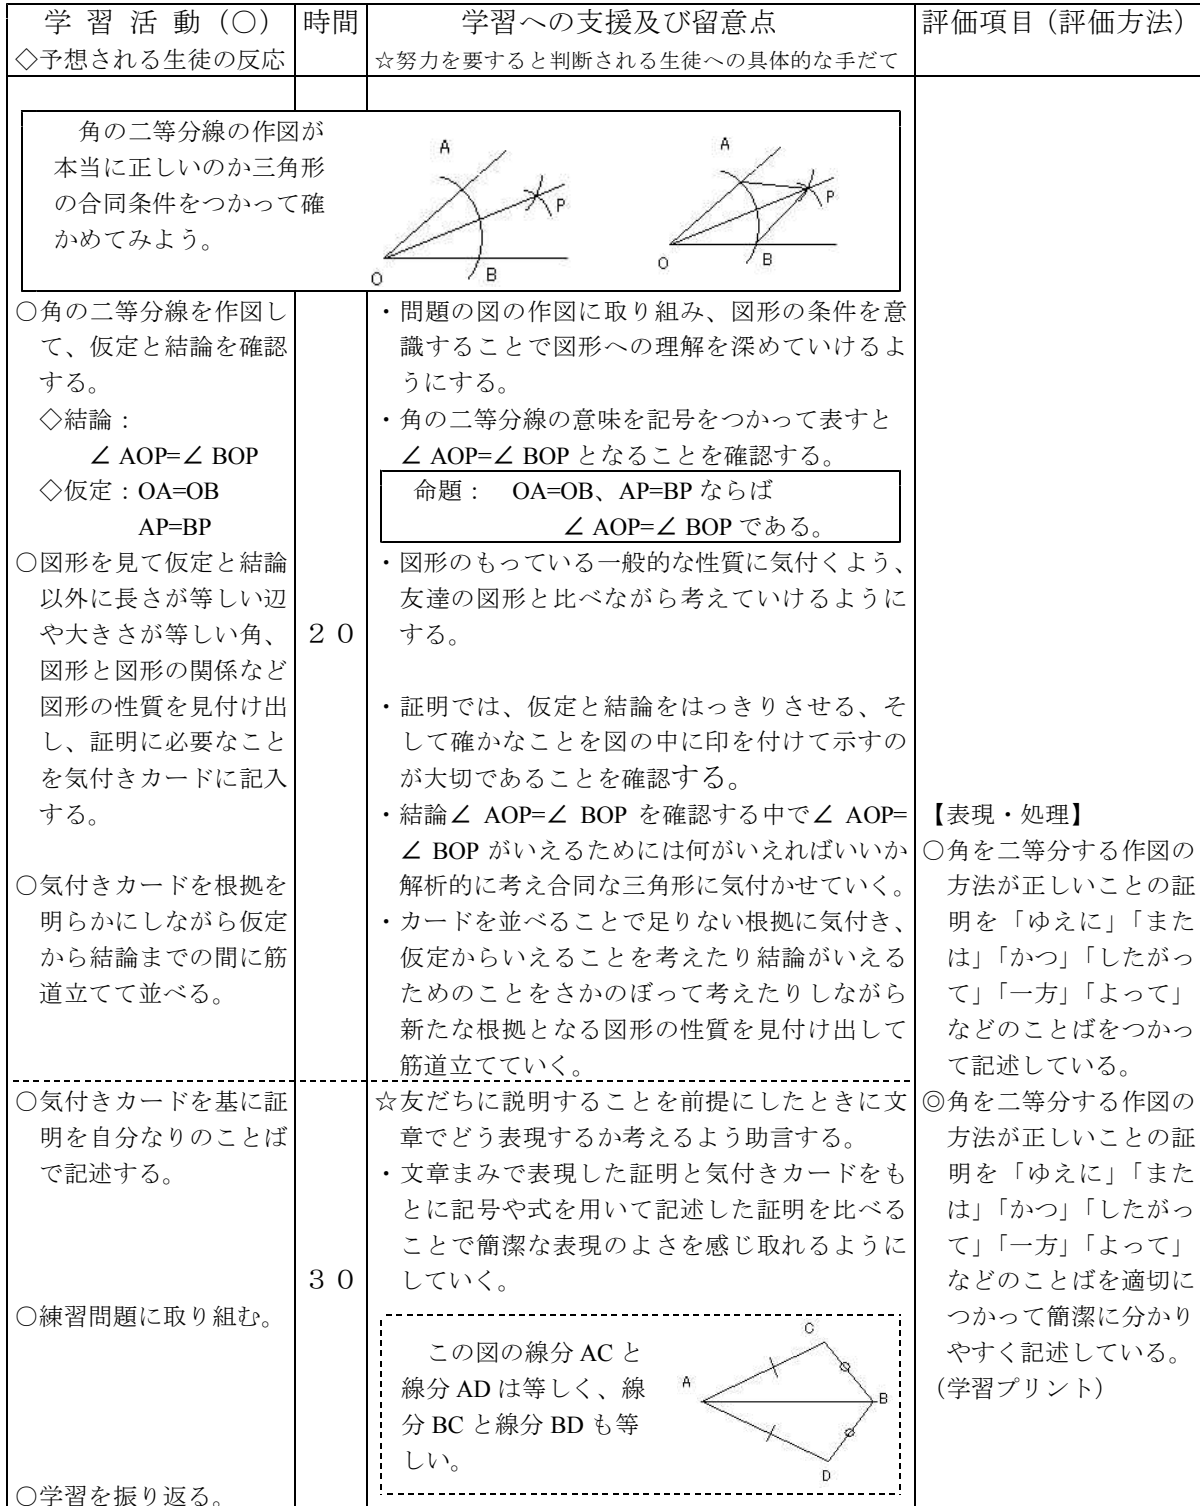 学 習 活 動（○）
◇予想される生徒の反応
時間
学習への支援及び留意点
☆努力を要すると判断される生徒への具体的な手だて
評価項目（評価方法）
角の二等分線の作図が
本当に正しいのか三角形
の合同条件をつかって確
かめてみよう。
A
P
O
B
A
P
O
B
○角の二等分線を作図し
て、仮定と結論を確認
する。
◇結論：
∠ AOP=∠ BOP
◇仮定：OA=OB
AP=BP
○図形を見て仮定と結論
以外に長さが等しい辺
や大きさが等しい角、
図形と図形の関係など
図形の性質を見付け出
し、証明に必要なこと
を気付きカードに記入
する。
○気付きカードを根拠を
明らかにしながら仮定
から結論までの間に筋
道立てて並べる。
２０
・問題の図の作図に取り組み、図形の条件を意
識することで図形への理解を深めていけるよ
うにする。
・角の二等分線の意味を記号をつかって表すと
∠ AOP=∠ BOP となることを確認する。
命題：　OA=OB、AP=BP ならば
∠ AOP=∠ BOP である。
・図形のもっている一般的な性質に気付くよう、
友達の図形と比べながら考えていけるように
する。
・証明では、仮定と結論をはっきりさせる、そ
して確かなことを図の中に印を付けて示すの
が大切であることを確認する。
・結論∠ AOP=∠ BOP を確認する中で∠ AOP=
∠ BOP がいえるためには何がいえればいいか
解析的に考え合同な三角形に気付かせていく。
・カードを並べることで足りない根拠に気付き、
仮定からいえることを考えたり結論がいえる
ためのことをさかのぼって考えたりしながら
新たな根拠となる図形の性質を見付け出して
筋道立てていく。
【表現・処理】
○角を二等分する作図の
方法が正しいことの証
明を「ゆえに」「また
は」「かつ」「したがっ
て」「一方」「よって」
などのことばをつかっ
て記述している。
○気付きカードを基に証
明を自分なりのことば
で記述する。
○練習問題に取り組む。
○学習を振り返る。
３０
☆友だちに説明することを前提にしたときに文
章でどう表現するか考えるよう助言する。
・文章まみで表現した証明と気付きカードをも
とに記号や式を用いて記述した証明を比べる
ことで簡潔な表現のよさを感じ取れるように
していく。
この図の線分 AC と
線分 AD は等しく、線
分 BC と線分 BD も等
しい。
C
A
B
D
◎角を二等分する作図の
方法が正しいことの証
明を「ゆえに」「また
は」「かつ」「したがっ
て」「一方」「よって」
などのことばを適切に
つかって簡潔に分かり
やすく記述している。
（学習プリント）